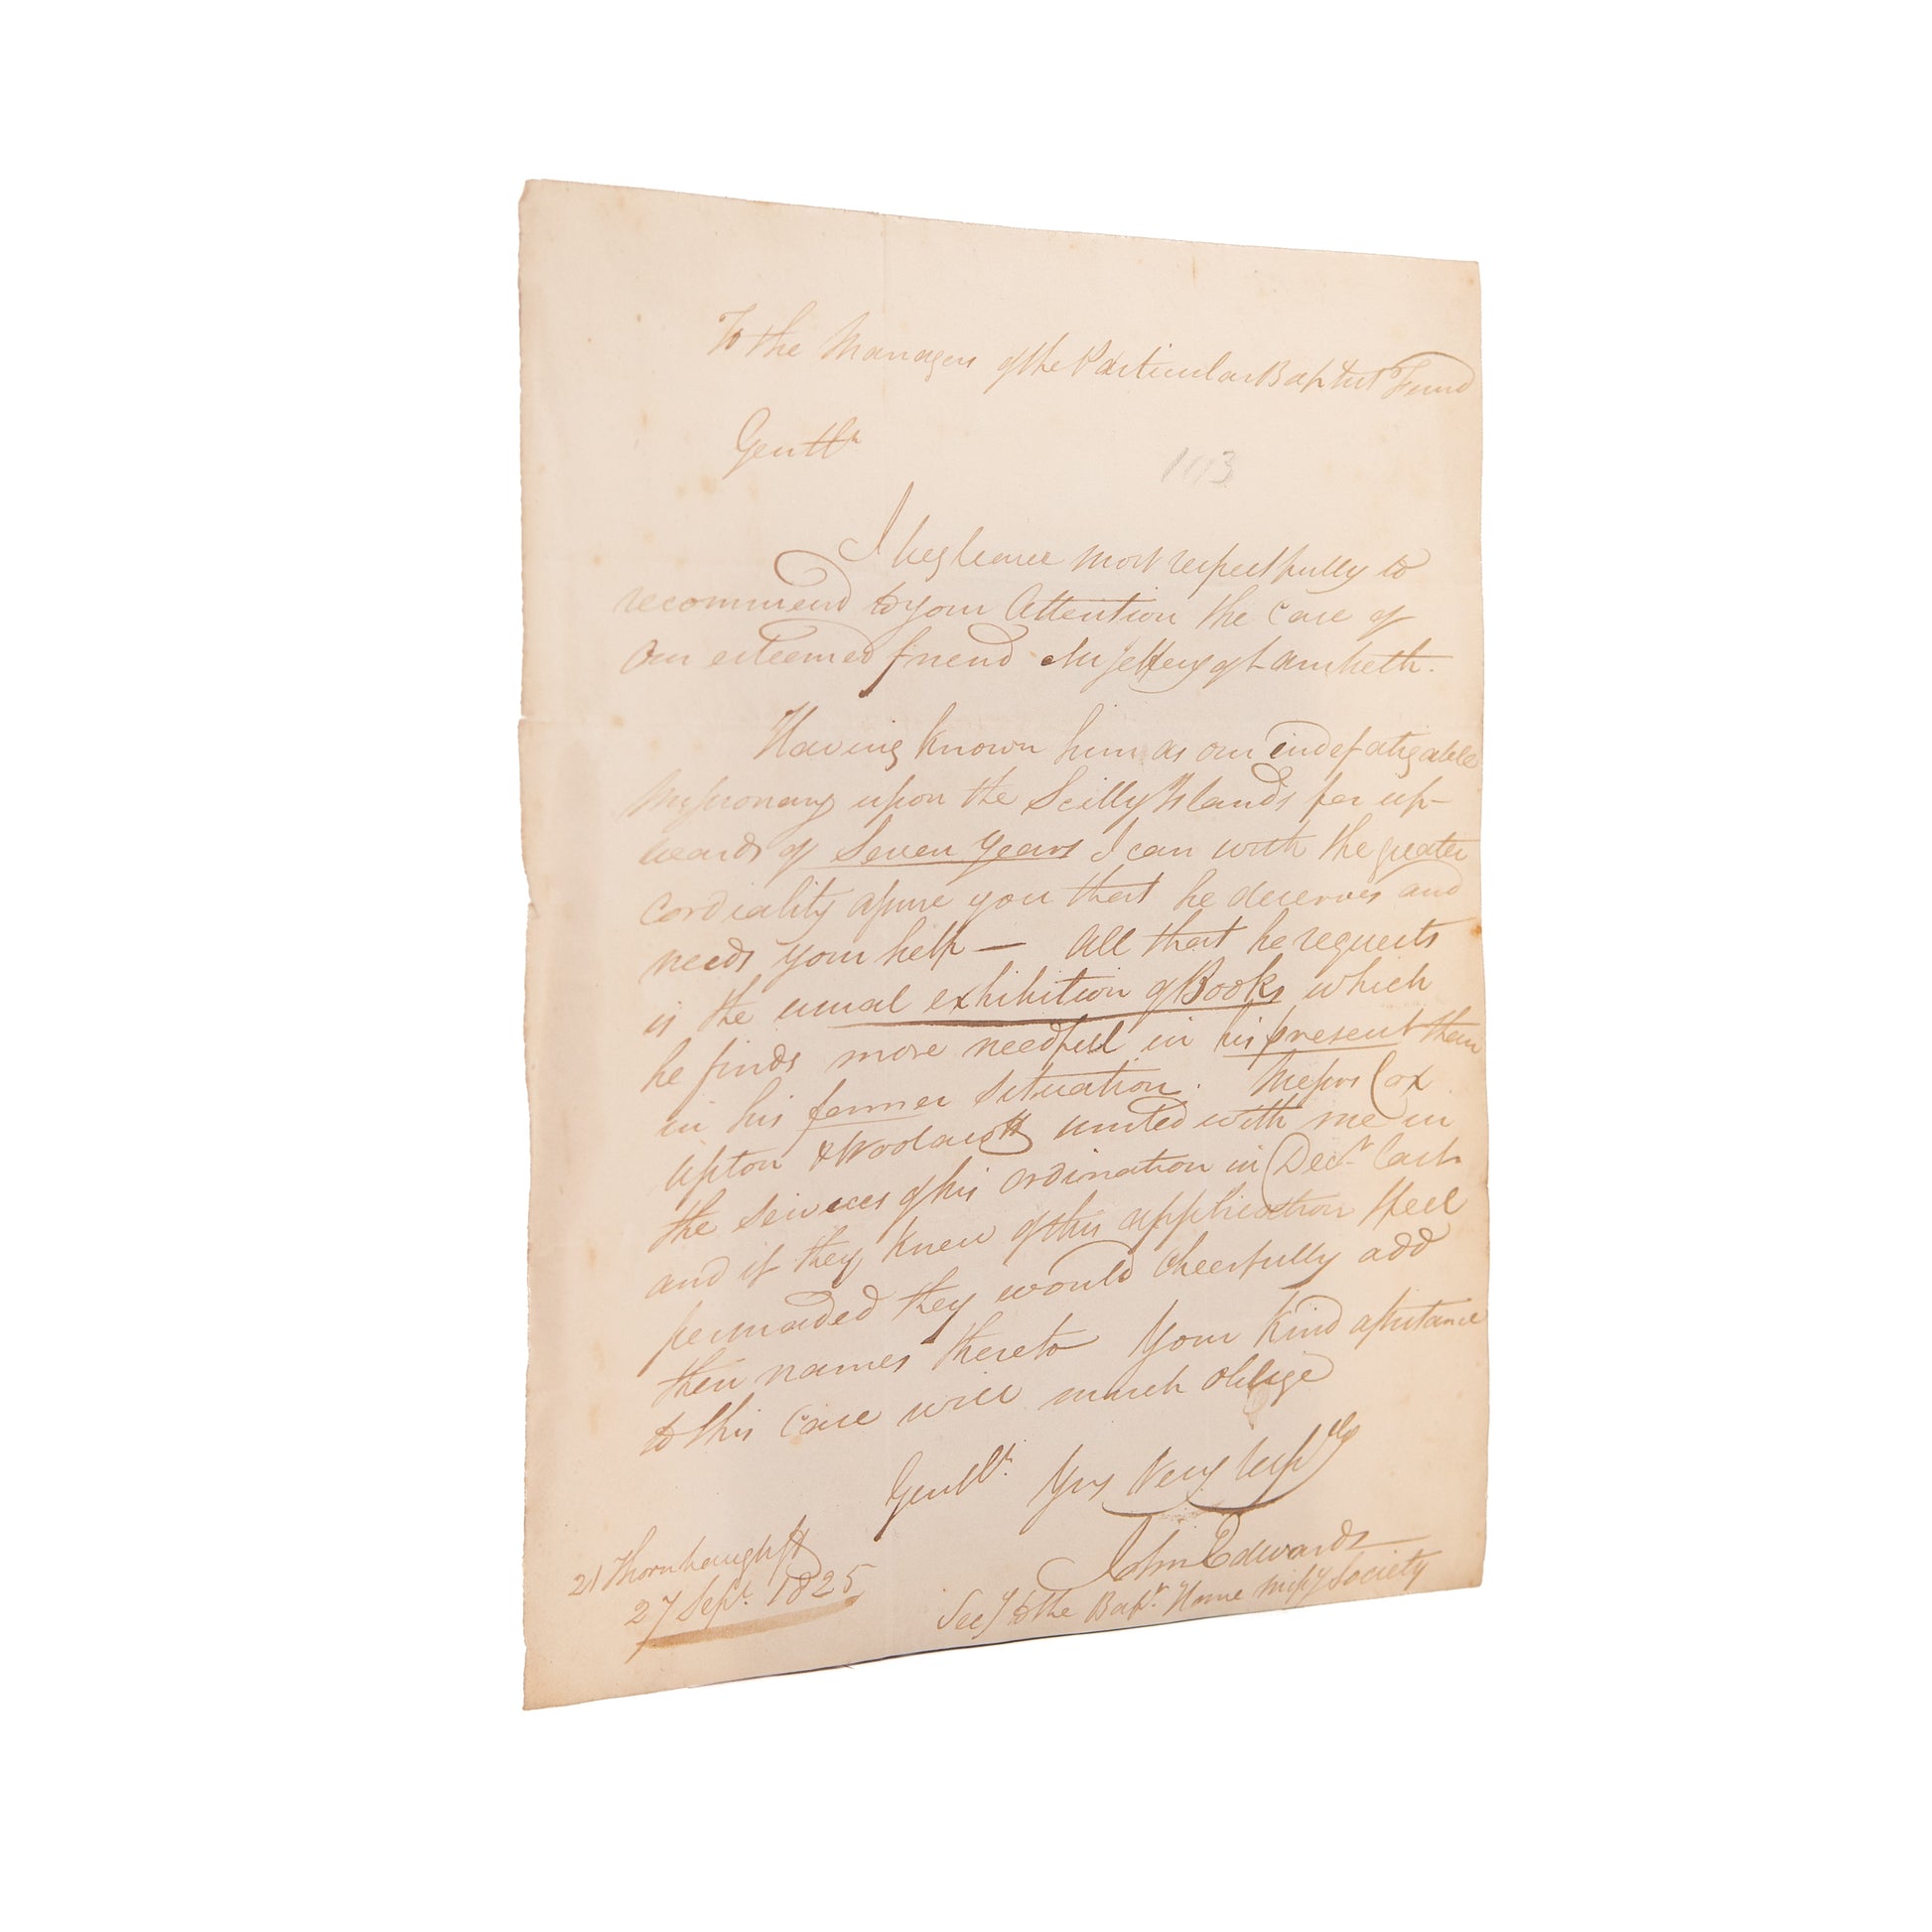 To the Managers of the Particular Baptist Fund
Gentln
103
I beg leave most respectfully to
recommend to your Attention the Case of
Our esteemed friend Mr Jeffery of Lambeth.
Having known him as our indefatigable
Missionary upon the Scilly Islands for up-
wards of Seven Years I can with the greater
Cordiality assure you that he deserves and
needs your help — All that he requests
is the usual exhibition of Books which
he finds more needful in his present than
in his former situation. Messrs Cox
Upton & Woolacott united with me in
the services of his Ordination in Decr. last
and if they knew of this application I feel
persuaded they would cheerfully add
their names thereto Your kind assistance
to this Case will much oblige
Gentln. Yrs Very resply
John Edwards
21 Thornhaugh St
27 Sept. 1825
Secy to the Bapt. Home Missy Society